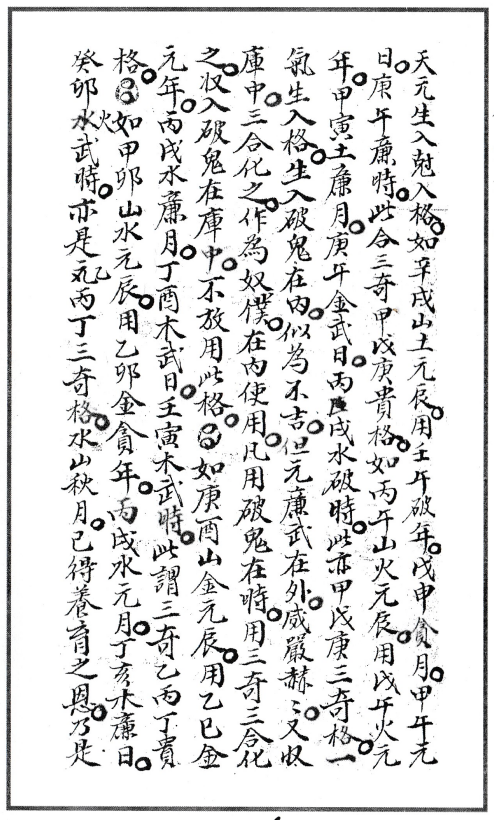 天元生入尅入格。如辛戌山土元辰。用壬午破年。戊申貪月。甲午元
日。庚午廉時。此合三奇甲戊庚貴格。如丙午山火元辰。用戊午火元
年。甲寅土廉月。庚午金武日。丙戌水破時。此亦甲戊庚三奇格。一
氣生入格。生入破鬼在內。似為不吉。但元廉武在外。威嚴赫〻。又収
庫中。三合化之。作為奴僕。在內使用。凡用破鬼在時。用三奇三合化
之。収入破鬼在庫中。不放用此格。如庚酉山金元辰。用乙巳金
元年。丙戌水廉月。丁酉木武日。壬寅木武時。此謂三奇乙丙丁貴
格。如甲卯山水元辰。用乙卯金貪年。丙戌水元月。丁亥木廉日。
癸卯水火武時。亦是乙丙丁三奇格。水山秋月。已得養育之恩。乃是